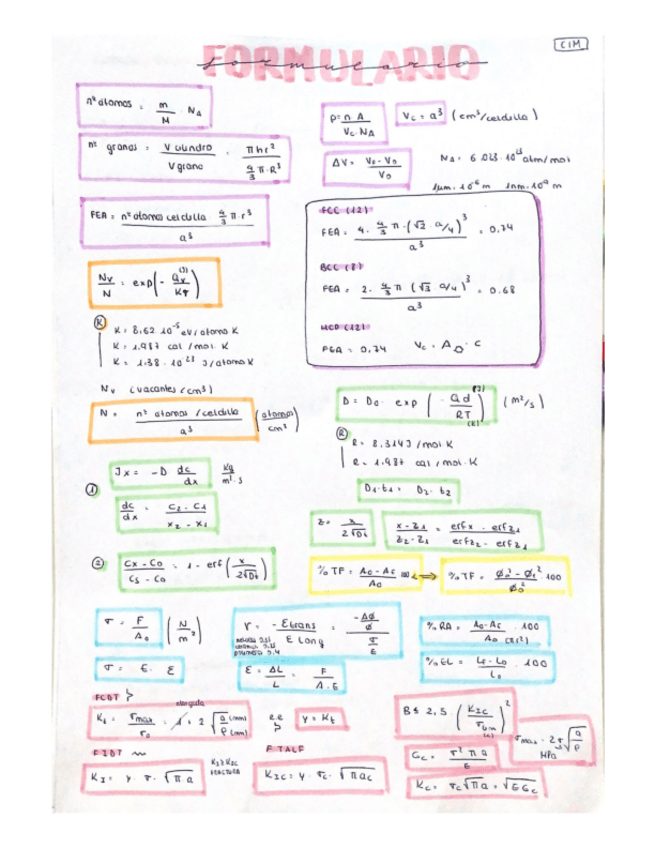 CIM
FORMULARIO
formulario
nº átomos = m/M · NA
ρ = n A / Vc·NA
Vc = a³ (cm³/celdilla)
nº granos = V cilindro / V grano = π h r² / 4/3 π·R³
ΔV = Vf - V0 / V0
NA = 6.023·10²³ atm/mol
1μm = 10⁻⁶ m 1nm = 10⁻⁹ m
FEA = nº átomos celdilla 4/3 π·r³ / a³
FCC (12)
FEA = 4 · 4/3 π · (√2 · a/4)³ / a³ = 0.74
BCC (8)
FEA = 2 · 4/3 π (√3 a/4)³ / a³ = 0.68
HCP (12)
FEA = 0.74 Vc = A · c
Nv/N = exp(- Qv (J) / KT)
(K)
K = 8,62·10⁻⁵ eV/átomo K
K = 1.987 cal/mol·K
K = 1.38·10⁻²³ J/átomo K
Nv (vacantes/cm³)
N = nº átomos/celdilla / a³ (átomos/cm³)
D = D0 · exp (- Qd (J) / RT (K)) (m²/s)
(R)
R = 8,314 J/mol·K
R = 1.987 cal/mol·K
D1·t1 = D2·t2
1
Jx = -D dc/dx Kg/m²·s
dc/dx = C2 - C1 / x2 - x1
z = x / 2√Dt
x - z1 / z2 - z1 = erfx - erfz1 / erfz2 - erfz1
2
Cx - C0 / Cs - C0 = 1 - erf (x / 2√Dt)
% TF = A0 - Af / A0 · 100 ⟹ % TF = Ø0² - Øf² / Ø0² · 100
σ = F/A0 (N/m²)
ν = - Etrans / E long = -ΔØ/Ø / σ/E
% RA = A0 - Af / A0 · 100
σ = E · ε
ε = ΔL/L = F/A·E
% EL = Lf - L0 / L0 · 100
FCDT
Kt = σmax / σ0 = 1 + 2 √(a (mm) / ρ (mm))
alargada
Y = Kt
B ≥ 2,5 (KIC / σ)²
σmax = 2σ0 √(a/ρ)
MPa
FIDT
KI ≥ KIC
FRACTURA
FTALF
Gc = σ² π a / E
KI = Y · σ · √πa
KIC = Y · σc · √πac
Kc = σc√πa = √EGc